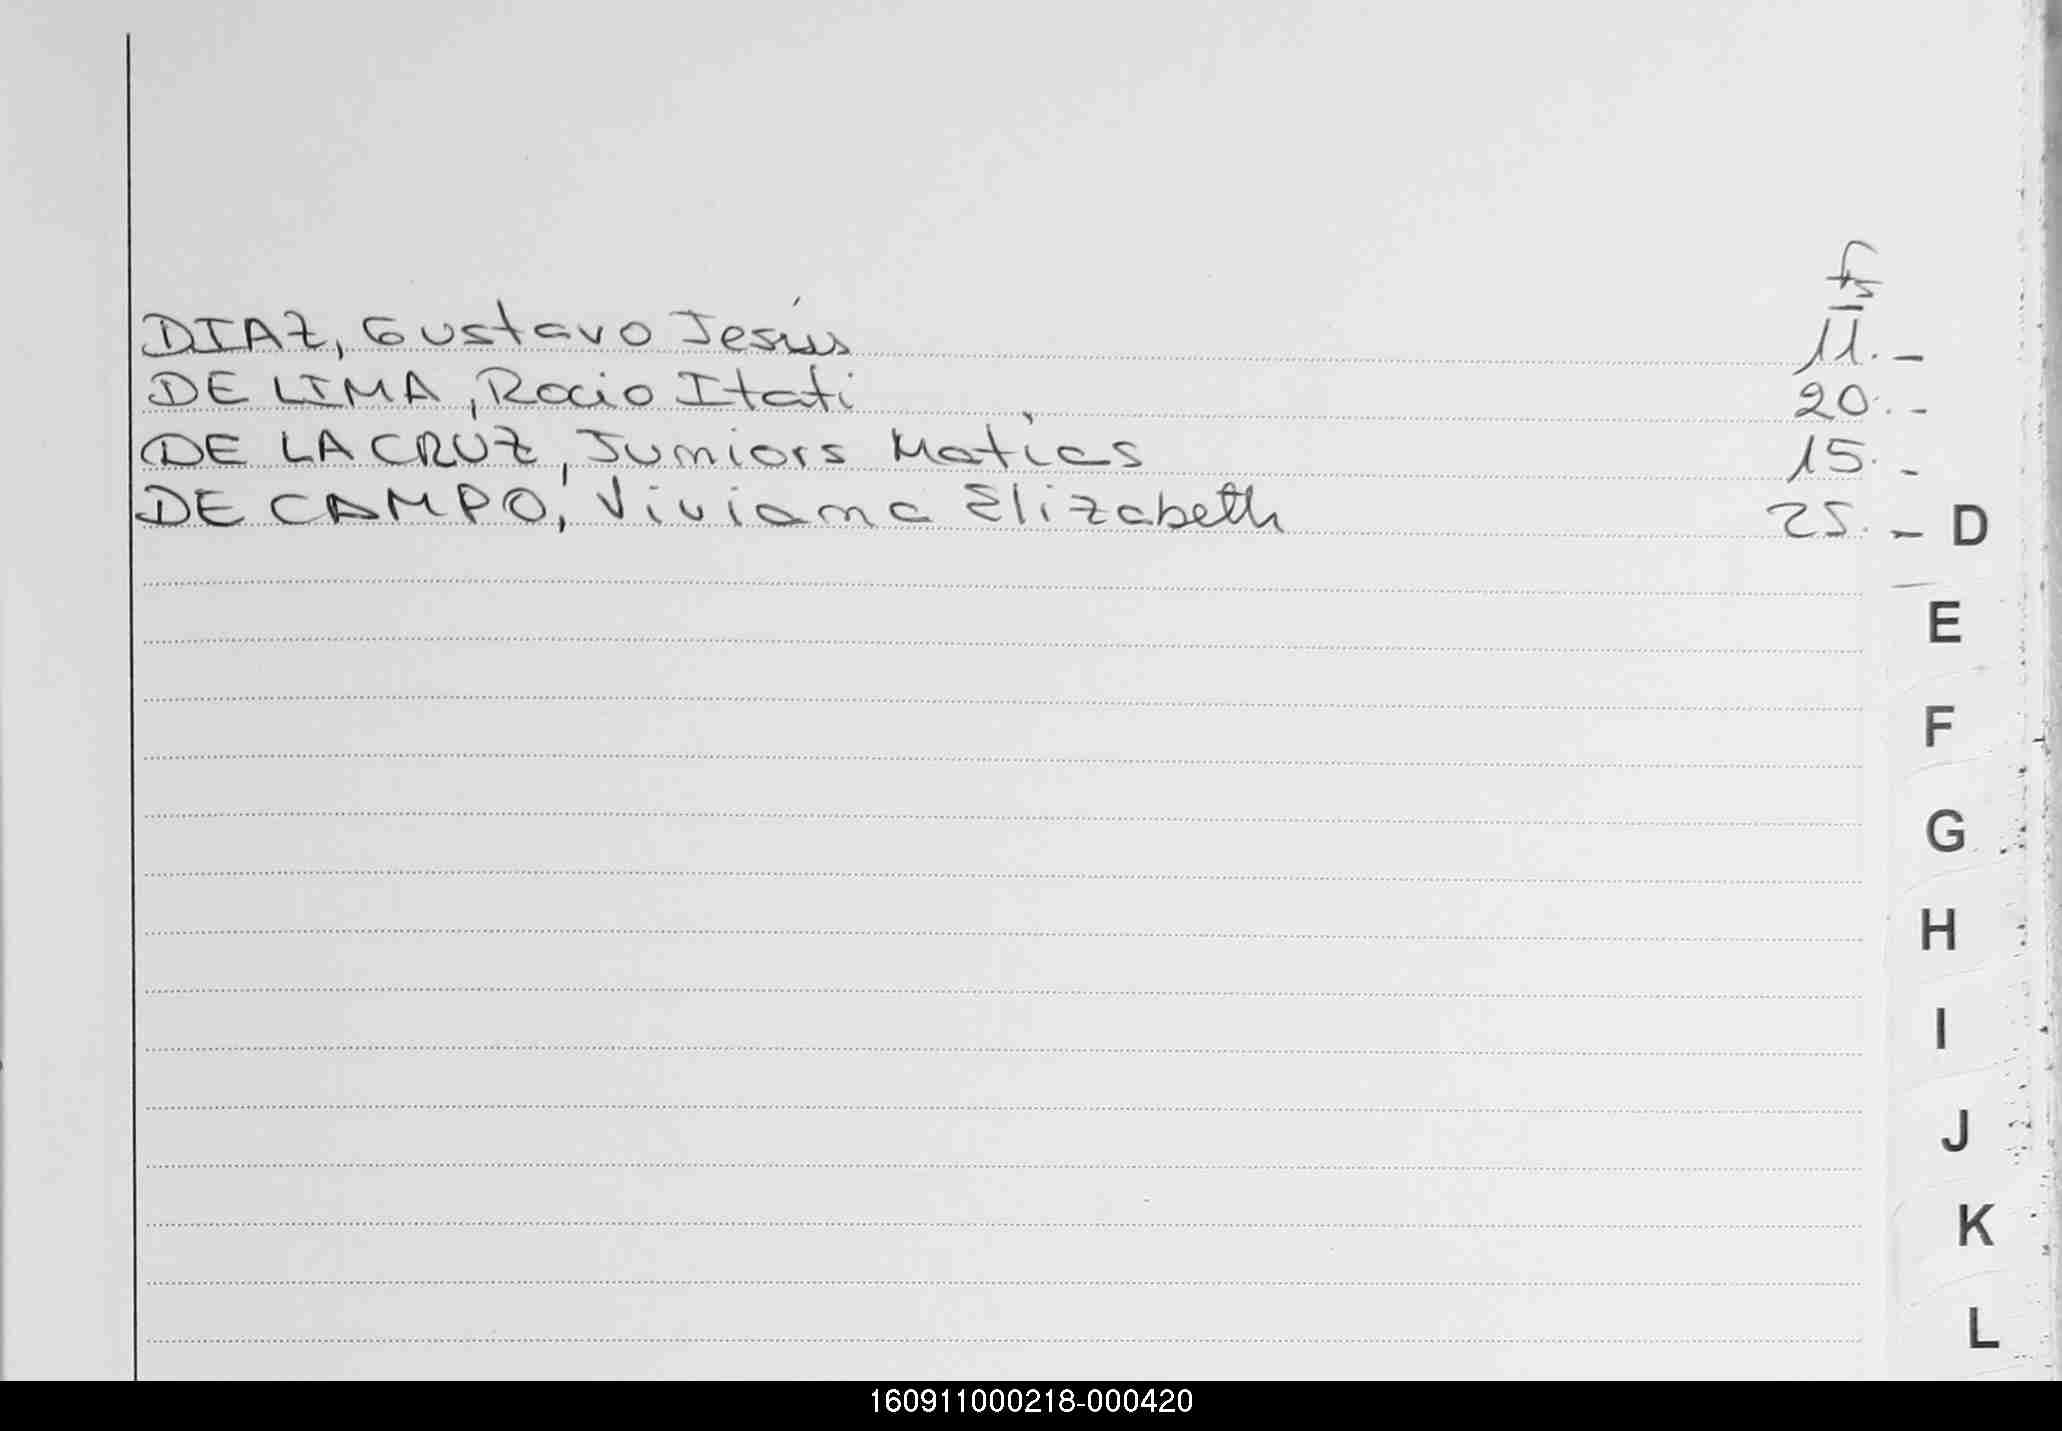 fs
DIAZ, Gustavo Jesús 11.-
DE LIMA, Rocio Itati 20.-
DE LA CRUZ, Juniors Matías 15.-
DE CAMPO, Viviana Elizabeth 25.- D
E
F
G
H
I
J
K
L
160911000218-000420